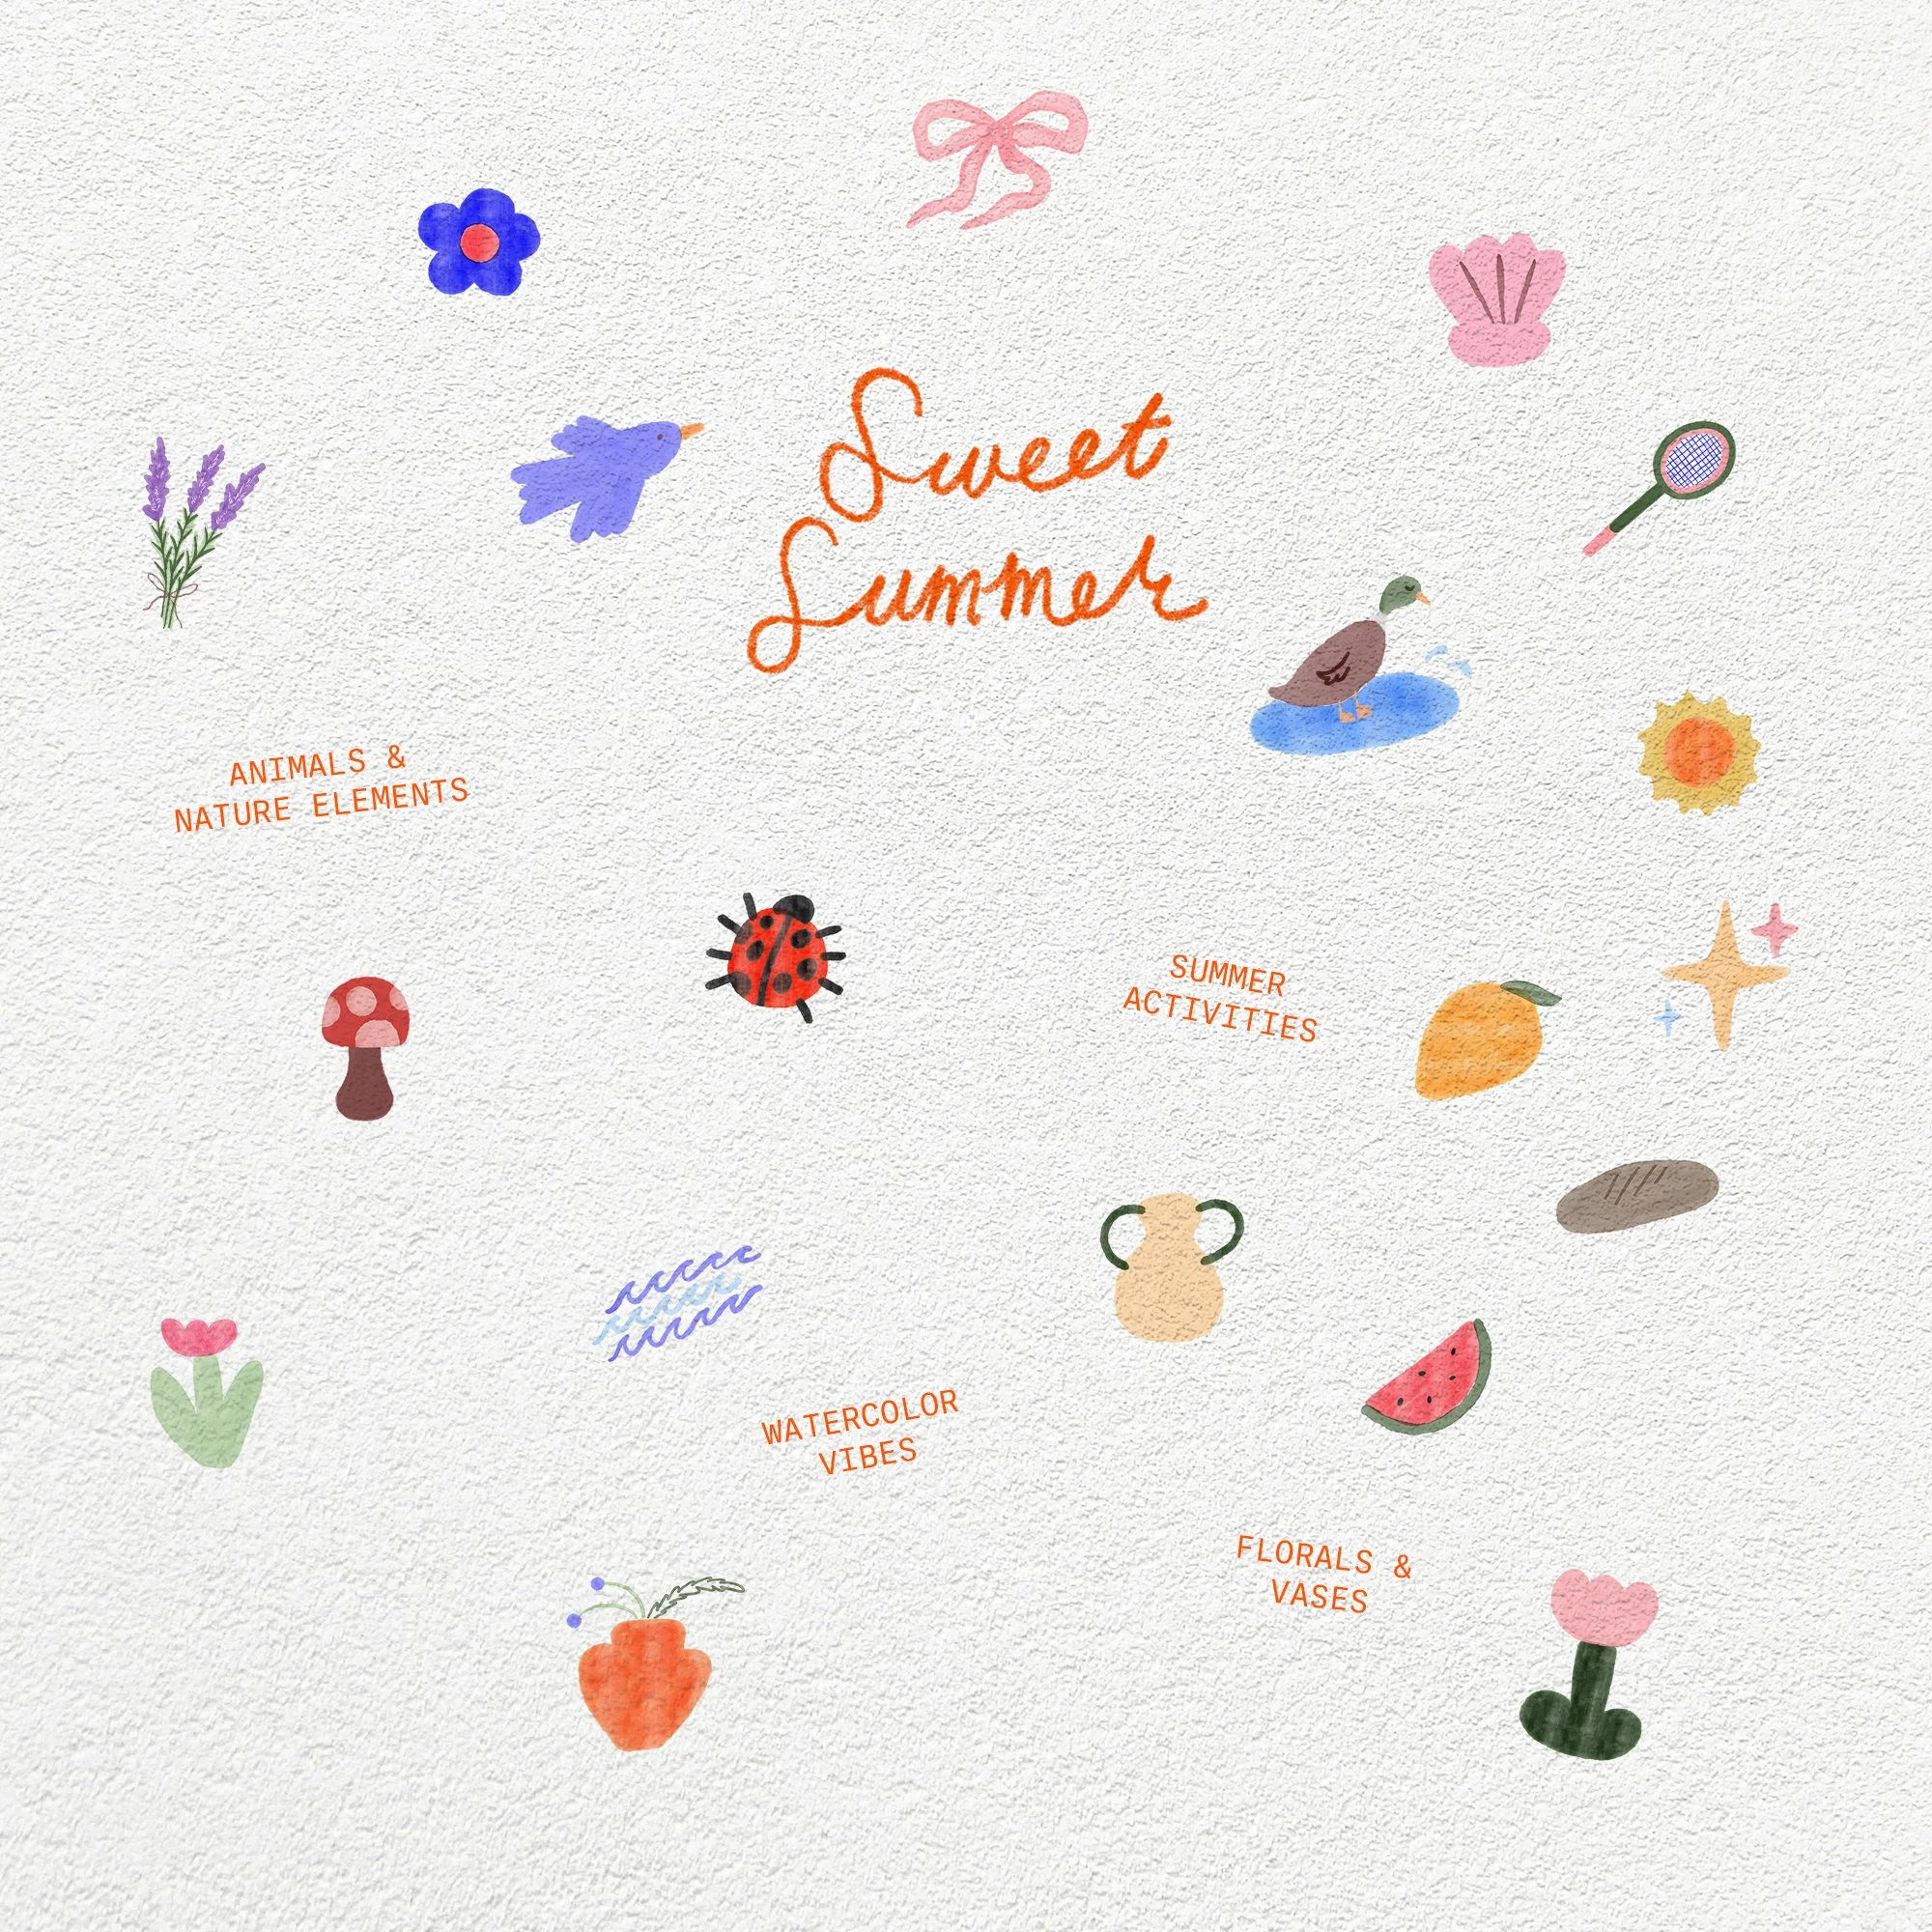 Sweet
Summer
ANIMALS &
NATURE ELEMENTS
SUMMER
ACTIVITIES
WATERCOLOR
VIBES
FLORALS &
VASES